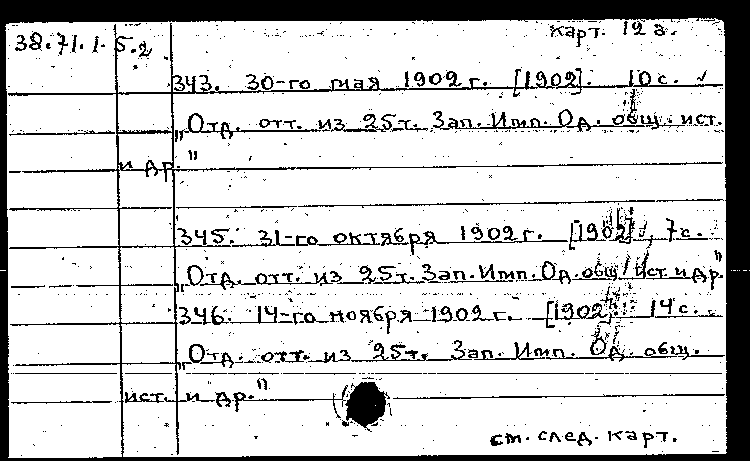 карт. 12 а.
38.71.1.5.2
343. 30-го мая 1902 г. [1902]. 10 с. ✓
„Отд. отт. из 25 т. Зап. Имп. Од. общ. ист.
и др."
345. 31-го октября 1902 г. [1902], 7 с.
„Отд. отт. из 25 т. Зап. Имп. Од. общ. ист. и др."
346. 14-го ноября 1902 г. [1902]. 14 с.
„Отд. отт. из 25 т. Зап. Имп. Од. общ.
ист. и др."
см. след. карт.